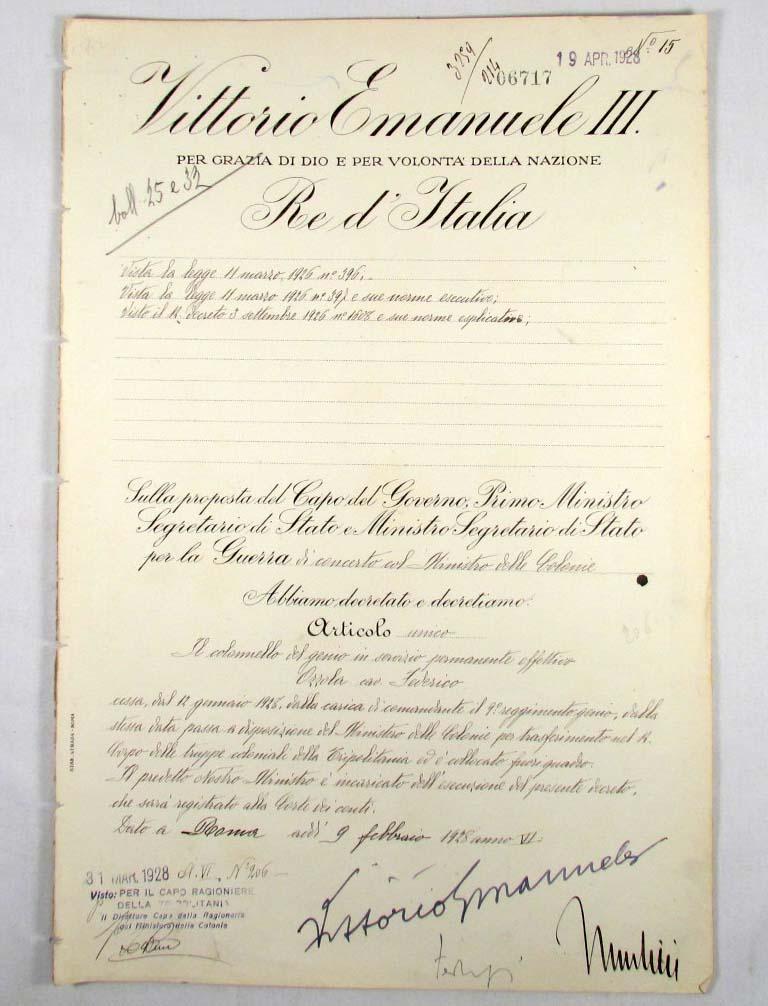 3259/214
06717
19 APR. 1928
Nº 15
Vittorio Emanuele III.
PER GRAZIA DI DIO E PER VOLONTA' DELLA NAZIONE
boll 25 e 32
Re d'Italia
Vista la legge 11 marzo 1926 nº 396;
Vista la legge 11 marzo 1926 nº 397 e sue norme esecutive;
Visto il R. decreto 3 settembre 1926 nº 1608 e sue norme esplicative;
Sulla proposta del Capo del Governo, Primo Ministro
Segretario di Stato e Ministro Segretario di Stato
per la Guerra di concerto col Ministro delle Colonie
Abbiamo decretato e decretiamo:
Articolo unico
Il colonnello del genio in servizio permanente effettivo
Ozzola cav. Federico
cessa, dal 12 gennaio 1928, dalla carica di comandante il 9º reggimento genio, dalla
stessa data passa a disposizione del Ministro delle Colonie per trasferimento nel R.
Corpo delle truppe coloniali della Tripolitania ed è collocato fuori quadro.
Il predetto Nostro Ministro è incaricato dell'esecuzione del presente decreto,
che sarà registrato alla Corte dei conti.
Dato a Roma addì 9 febbraio 1928 anno VI
206
31 MAR. 1928 A. VI. Nº 206
Visto: PER IL CAPO RAGIONIERE
DELLA TRIPOLITANIA
Il Direttore Capo della Ragioneria
del Ministero delle Colonie
Vittorio Emanuele
Mussolini